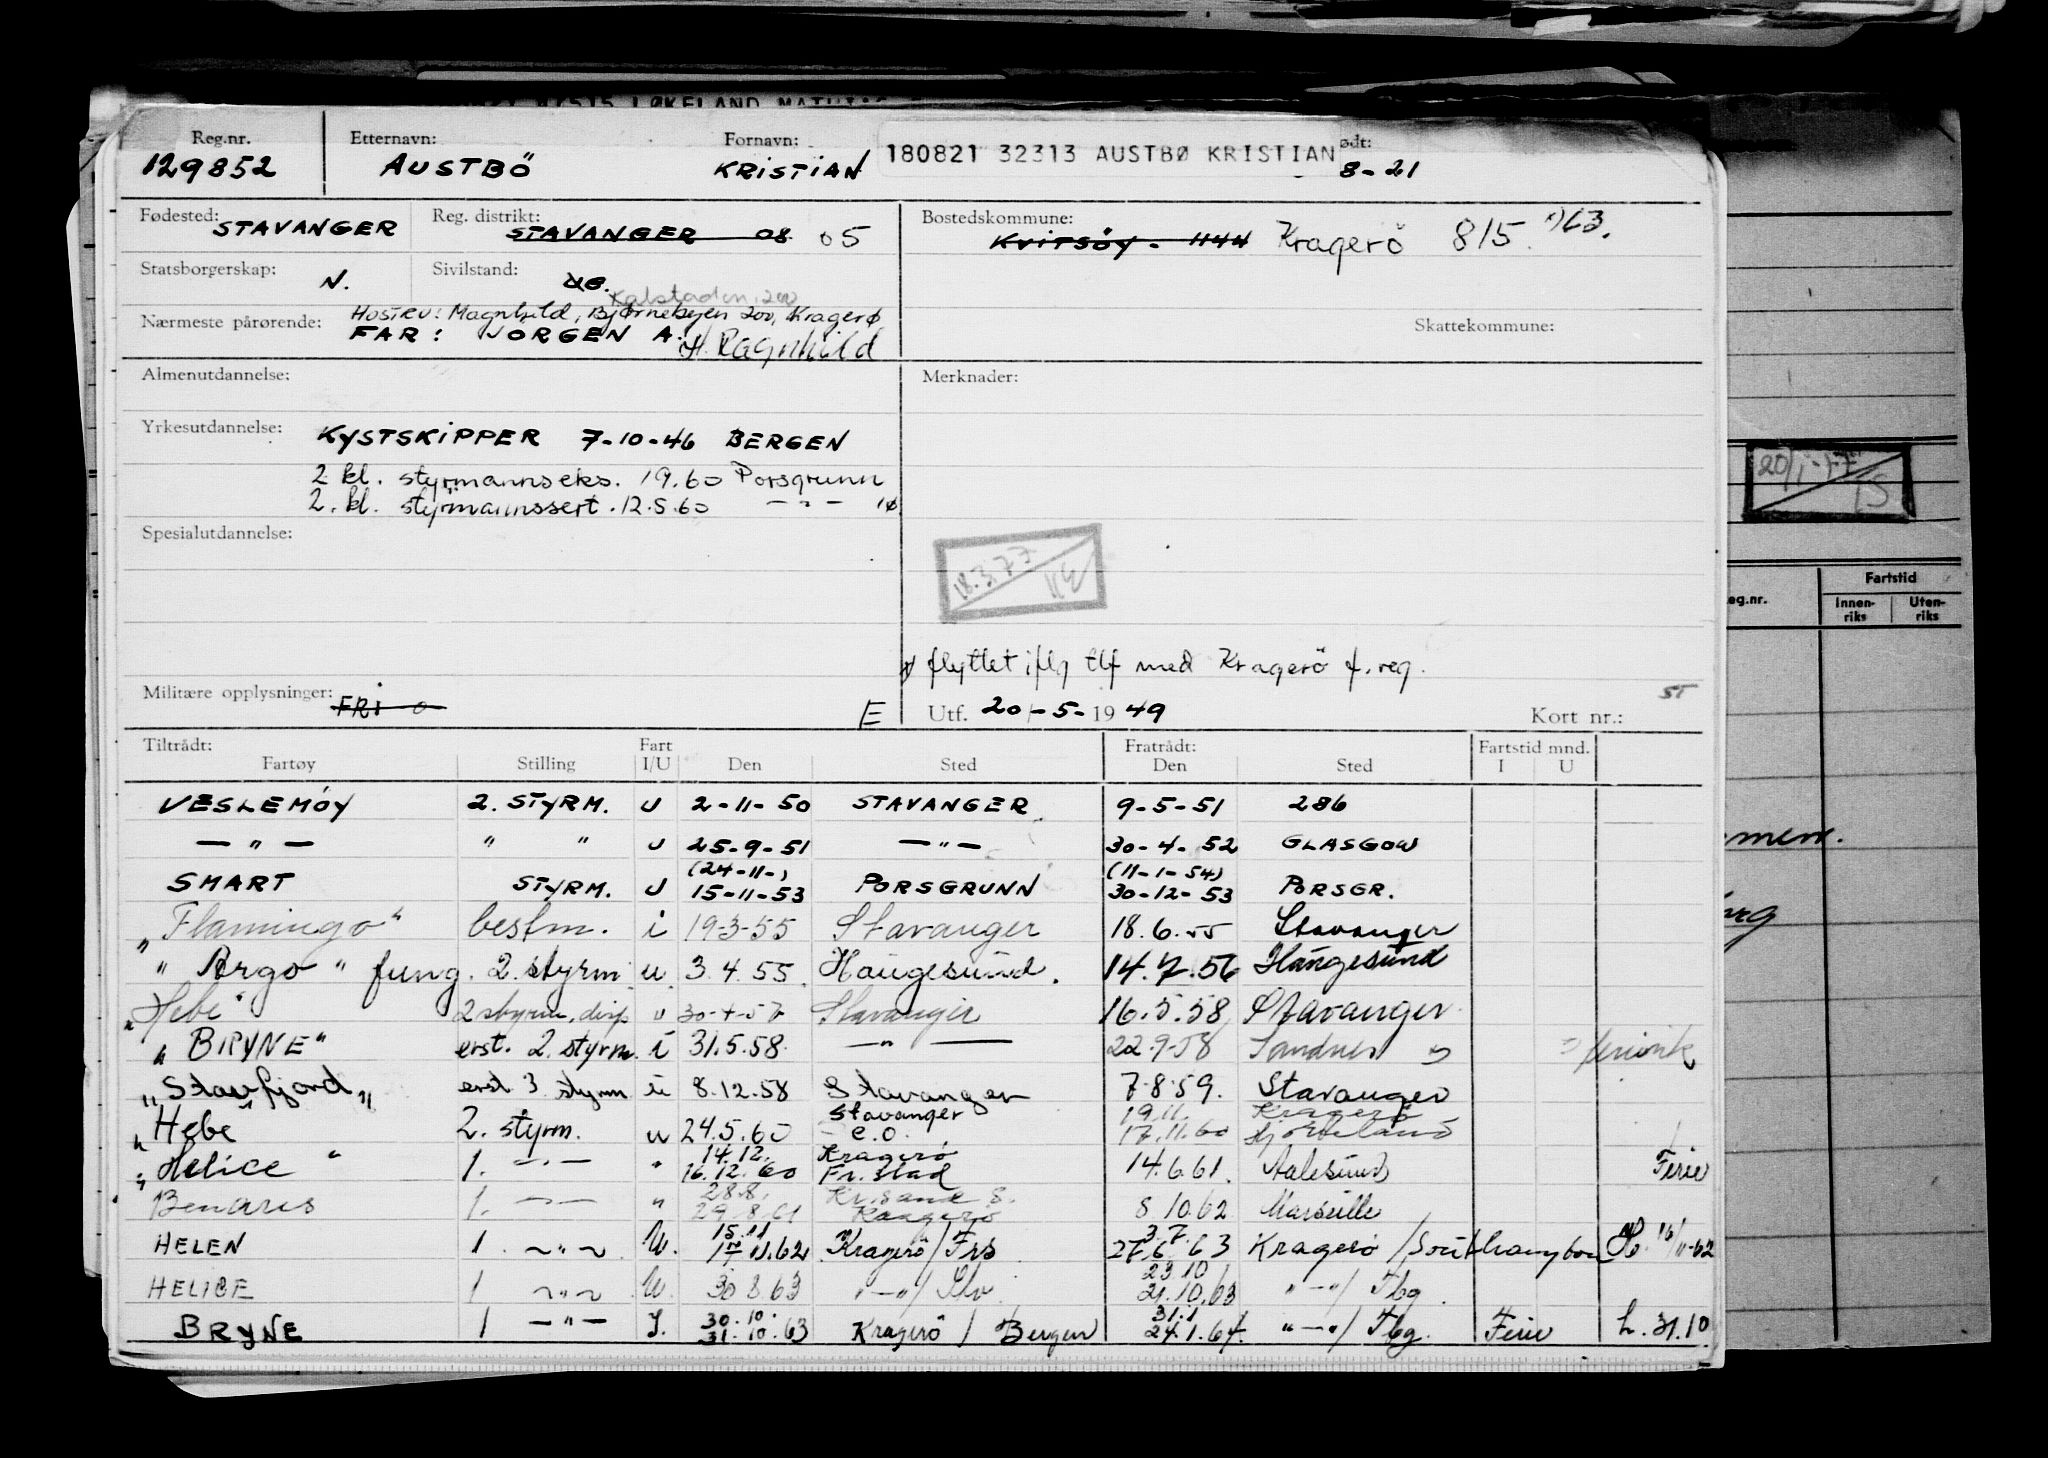 Reg.nr. Etternavn: Fornavn: ødt:
129852 AUSTBÖ KRISTIAN 180821 32313 AUSTBØ KRISTIAN 8-21
Fødested: STAVANGER Reg. distrikt: STAVANGER 08 05 Bostedskommune: KVITSÖY - 1144 Kragerö 815. 1/63.
Statsborgerskap: N. Sivilstand: UG.
Kalstadon, 200
Nærmeste pårørende: HUSTRU: Magnhild, Bjørnebyen 200, Kragerø Skattekommune:
FAR: JORGEN A. H. Ragnhild
Almenutdannelse: Merknader:
Yrkesutdannelse: KYSTSKIPPER 7-10-46 BERGEN
2 kl. styrmannseks. 19.60 Porsgrunn
2. kl. styrmannssert. 12.5.60 — " — 1ø
Spesialutdannelse:
18.3.77
20/1-77
flyttet iflg tlf med Kragerö f.reg.
Militære opplysninger: FRI E Utf. 20-5-1949 Kort nr.: ST
Tiltrådt: Fart Fratrådt: Fartstid mnd.
Fartøy Stilling I/U Den Sted Den Sted I U
VESLEMÖY 2. STYRM. U 2-11-50 STAVANGER 9-5-51 286
— " — " " U 25-9-51 — " — 30-4-52 GLASGOW
(24-11-) (11-1-54)
SMART STYRM. U 15-11-53 PORSGRUNN 30-12-53 PORSGR.
"Flamingo" bestm. i 19-3-55 Stavanger 18.6.55 Stavanger
"Argo" fung. 2. styrm u. 3.4.55 Haugesund. 14.7.56 Haugesund
"Hebe" 2 styrm, disp " 30-4-57 Stavanger 16.5.58 Stavanger
"BRYNE" erst. 2. styrm. i 31.5.58. — " — 22.9.58 Sandnes
"Stavfjord" erst 3 styrm u 8.12.58 Stavanger 7.8.59. Stavanger
Stavanger 19.11. Kragerö
"Hebe 2. styrm. u 24.5.60 e.o. 17.11.60
14.12. Kragerö
"Helice" 1. — " — " 16.12.60 Fr.stad 14.6.61. Aalesund Ferie
28.8. Kr.sand S.
Benaris 1. — " — " 29.8.61 Kragerö 8.10.62 Marseille
15.11 3.7.
HELEN 1. — " — U. 17.11.62 Kragerö/Frs 27.6.63 Kragerö/Southampton 16/11-62
23.10
HELICE 1 — " — U. 30.8.63 " — " / Stv 21.10.63 " — " / Tbg
30.10. 31.1
BRYNE 1 — " — I. 31.10.63 Kragerö / Bergen 24.1.64. " — " / Tbg. Ferie L. 31.10
eg.nr. Fartstid
Innen-riks Uten-riks